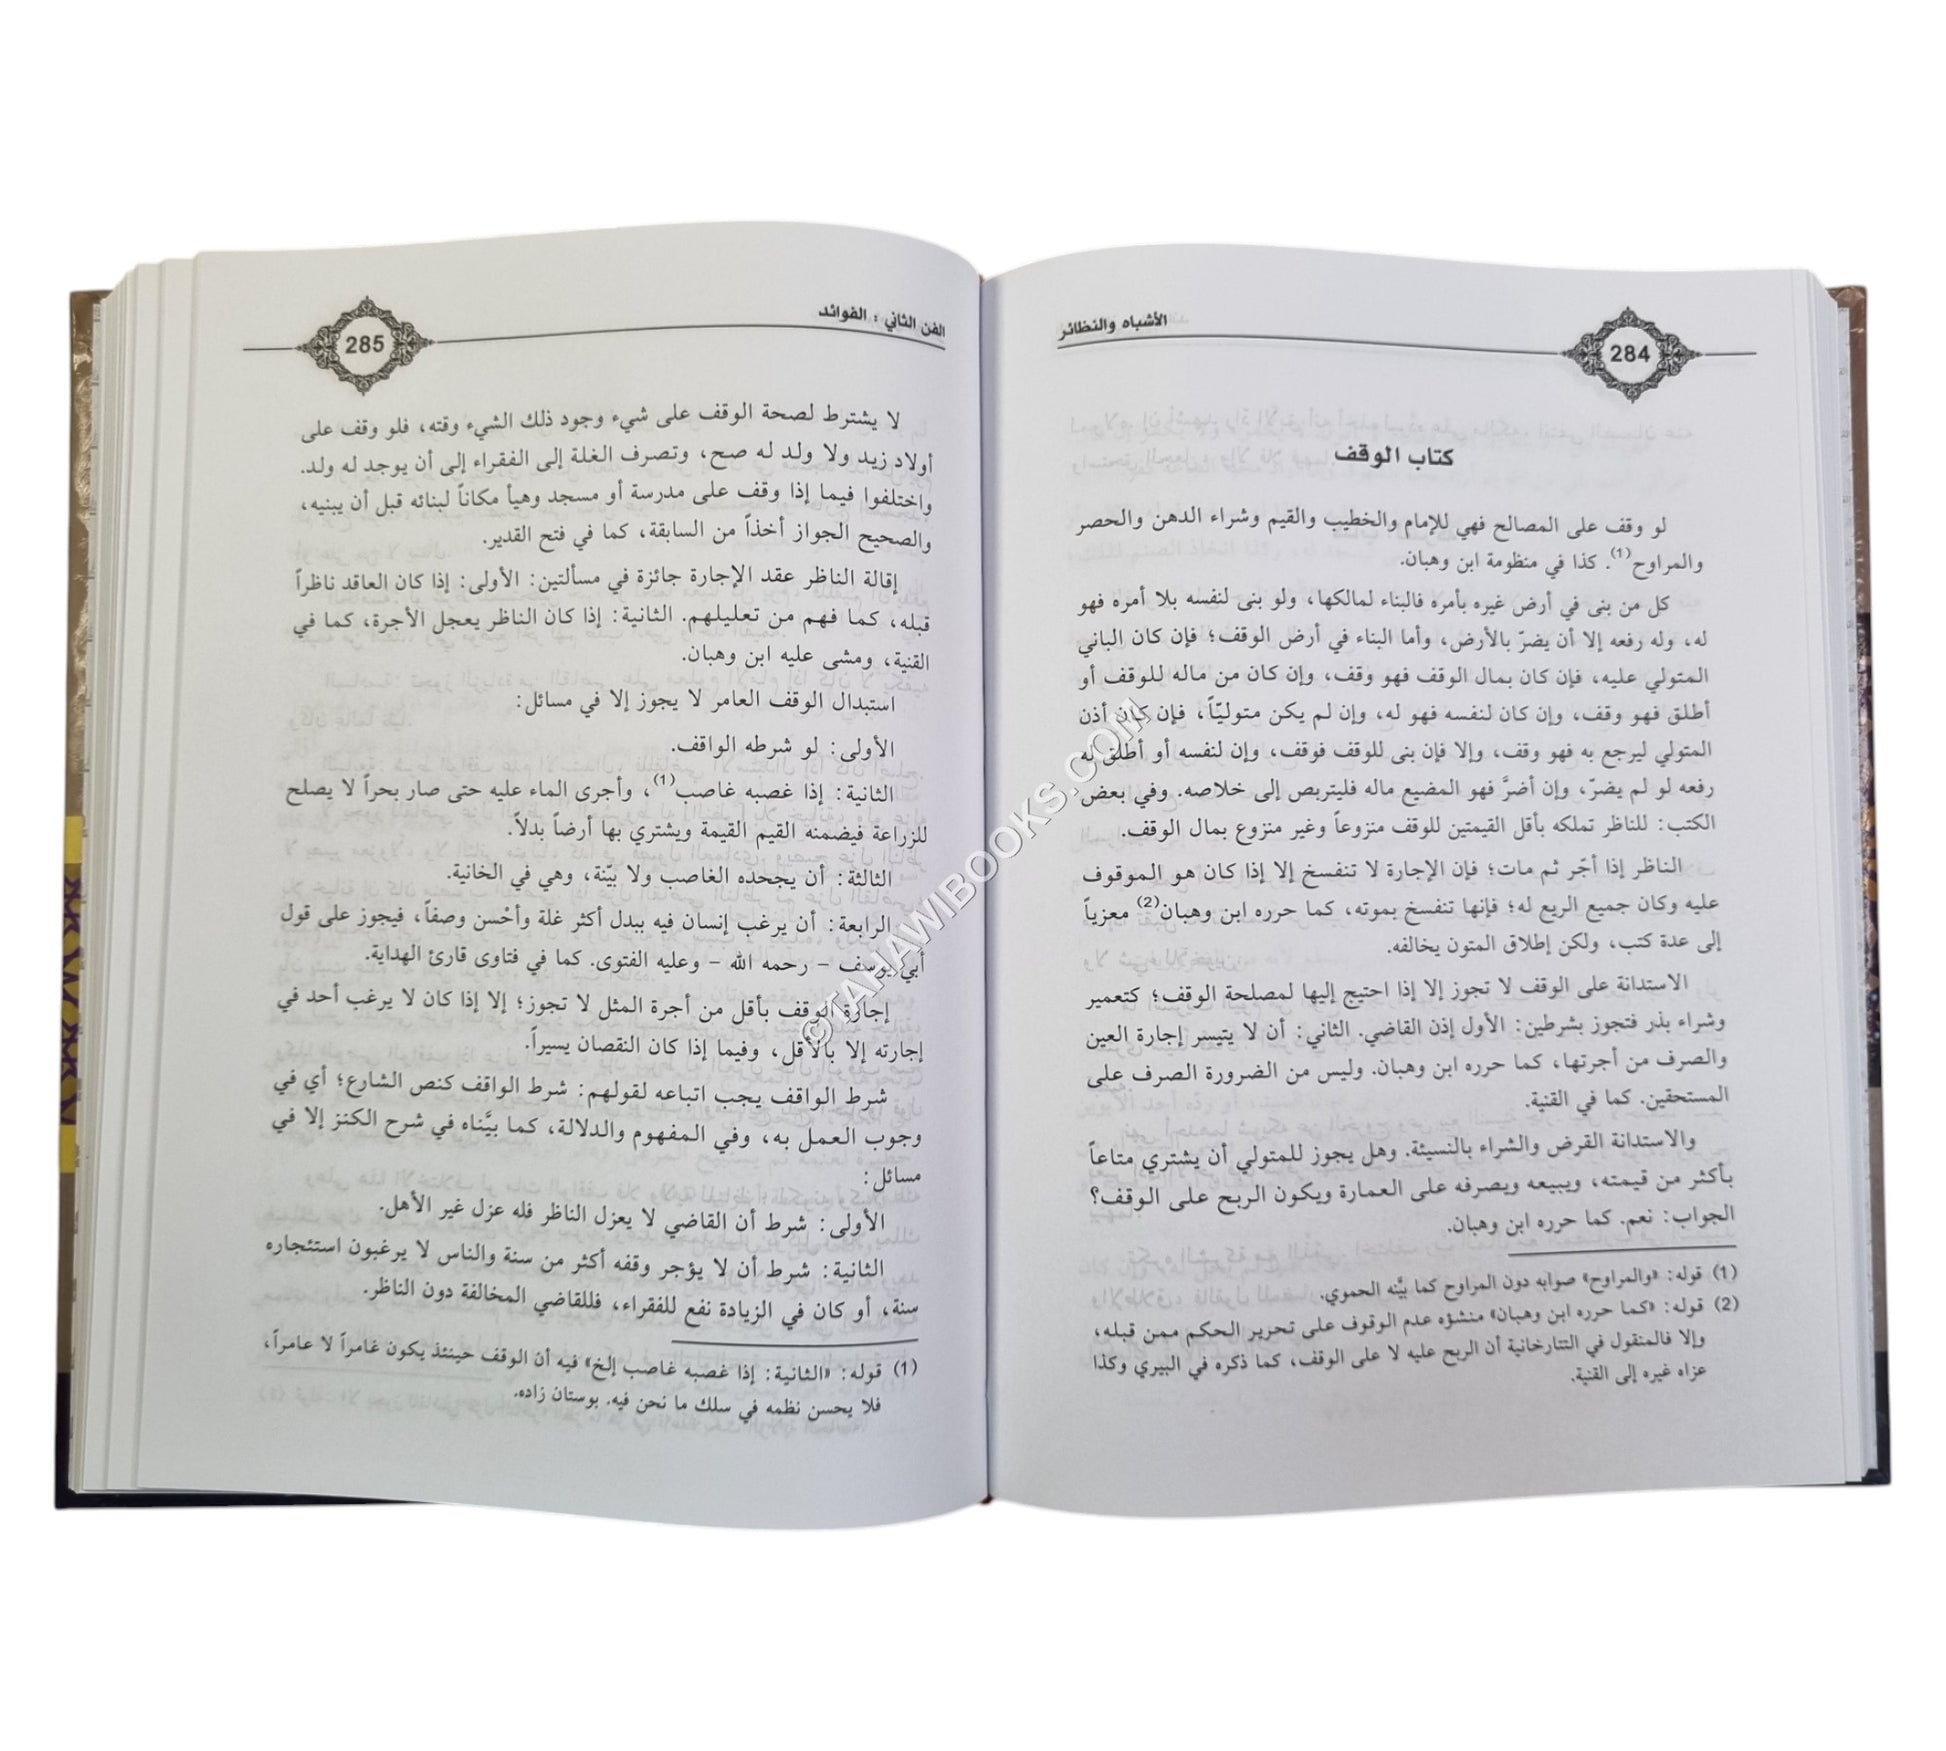 284
الأشباه والنظائر
كتاب الوقف
لو وقف على المصالح فهي للإمام والخطيب والقيم وشراء الدهن والحصر
والمراوح(1). كذا في منظومة ابن وهبان.
كل من بنى في أرض غيره بأمره فالبناء لمالكها، ولو بنى لنفسه بلا أمره فهو
له، وله رفعه إلا أن يضرّ بالأرض، وأما البناء في أرض الوقف؛ فإن كان الباني
المتولي عليه، فإن كان بمال الوقف فهو وقف، وإن كان من ماله للوقف أو
أطلق فهو وقف، وإن كان لنفسه فهو له، وإن لم يكن متوليّاً، فإن كان أذن
المتولي ليرجع به فهو وقف، وإلا فإن بنى للوقف فوقف، وإن لنفسه أو أطلق له
رفعه لو لم يضرّ، وإن أضرَّ فهو المضيع ماله فليتربص إلى خلاصه. وفي بعض
الكتب: للناظر تملكه بأقل القيمتين للوقف منزوعاً وغير منزوع بمال الوقف.
الناظر إذا أجّر ثم مات؛ فإن الإجارة لا تنفسخ إلا إذا كان هو الموقوف
عليه وكان جميع الريع له؛ فإنها تنفسخ بموته، كما حرره ابن وهبان(2) معزياً
إلى عدة كتب، ولكن إطلاق المتون يخالفه.
الاستدانة على الوقف لا تجوز إلا إذا احتيج إليها لمصلحة الوقف؛ كتعمير
وشراء بذر فتجوز بشرطين: الأول إذن القاضي. الثاني: أن لا يتيسر إجارة العين
والصرف من أجرتها، كما حرره ابن وهبان. وليس من الضرورة الصرف على
المستحقين. كما في القنية.
والاستدانة القرض والشراء بالنسيئة. وهل يجوز للمتولي أن يشتري متاعاً
بأكثر من قيمته، ويبيعه ويصرفه على العمارة ويكون الربح على الوقف؟
الجواب: نعم. كما حرره ابن وهبان.
(1) قوله: «والمراوح» صوابه دون المراوح كما بيَّنه الحموي.
(2) قوله: «كما حرره ابن وهبان» منشؤه عدم الوقوف على تحرير الحكم ممن قبله،
وإلا فالمنقول في التتارخانية أن الربح عليه لا على الوقف، كما ذكره في البيري وكذا
عزاه غيره إلى القنية.
الفن الثاني : الفوائد
285
لا يشترط لصحة الوقف على شيء وجود ذلك الشيء وقته، فلو وقف على
أولاد زيد ولا ولد له صح، وتصرف الغلة إلى الفقراء إلى أن يوجد له ولد.
واختلفوا فيما إذا وقف على مدرسة أو مسجد وهيأ مكاناً لبنائه قبل أن يبنيه،
والصحيح الجواز أخذاً من السابقة، كما في فتح القدير.
إقالة الناظر عقد الإجارة جائزة في مسألتين: الأولى: إذا كان العاقد ناظراً
قبله، كما فهم من تعليلهم. الثانية: إذا كان الناظر يعجل الأجرة، كما في
القنية، ومشى عليه ابن وهبان.
استبدال الوقف العامر لا يجوز إلا في مسائل:
الأولى: لو شرطه الواقف.
الثانية: إذا غصبه غاصب(1)، وأجرى الماء عليه حتى صار بحراً لا يصلح
للزراعة فيضمنه القيم القيمة ويشتري بها أرضاً بدلاً.
الثالثة: أن يجحده الغاصب ولا بيّنة، وهي في الخانية.
الرابعة: أن يرغب إنسان فيه ببدل أكثر غلة وأحْسن وصفاً، فيجوز على قول
أبي يوسف - رحمه الله - وعليه الفتوى. كما في فتاوى قارئ الهداية.
إجارة الوقف بأقل من أجرة المثل لا تجوز؛ إلا إذا كان لا يرغب أحد في
إجارته إلا بالأقل، وفيما إذا كان النقصان يسيراً.
شرط الواقف يجب اتباعه لقولهم: شرط الواقف كنص الشارع؛ أي في
وجوب العمل به، وفي المفهوم والدلالة، كما بيَّناه في شرح الكنز إلا في
مسائل:
الأولى: شرط أن القاضي لا يعزل الناظر فله عزل غير الأهل.
الثانية: شرط أن لا يؤجر وقفه أكثر من سنة والناس لا يرغبون استئجاره
سنة، أو كان في الزيادة نفع للفقراء، فللقاضي المخالفة دون الناظر.
(1) قوله: «الثانية: إذا غصبه غاصب إلخ» فيه أن الوقف حينئذ يكون غامراً لا عامراً،
فلا يحسن نظمه في سلك ما نحن فيه. بوستان زاده.
©TAHAWIBOOKS.COM